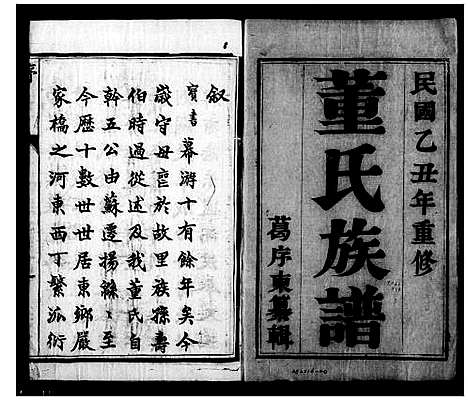 民國乙丑年重修
董氏族譜
葛序東纂輯
叙
寳書幕游十有餘年矣今
歲守母䘮於故里族孫壽
伯時過從述及我董氏自
幹五公由蘇遷揚繇〻至
今歷十數世世居東鄉嚴
家橋之河東西丁繁派衍
序